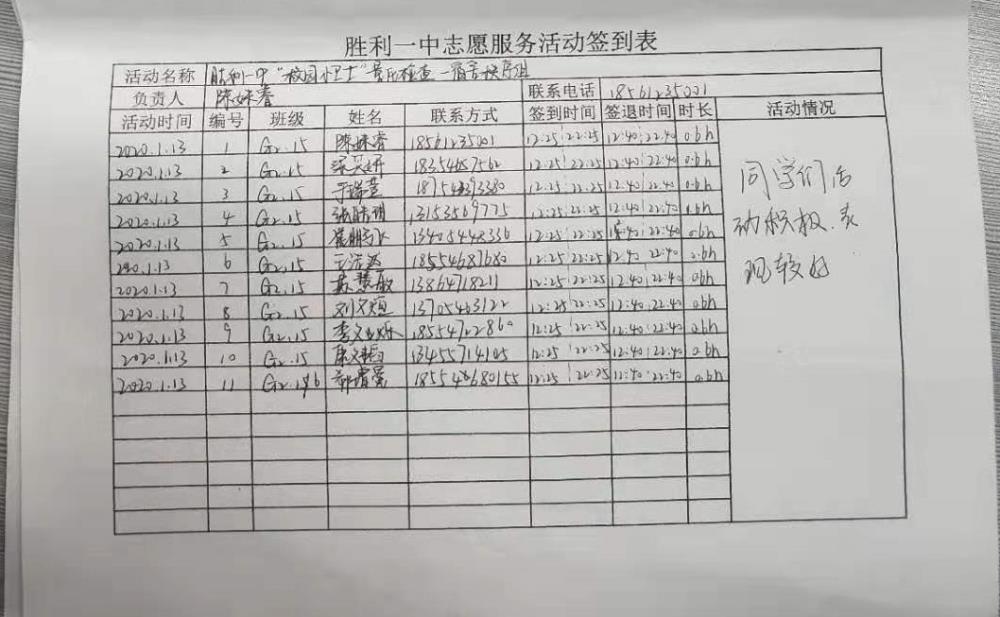 胜利一中志愿服务活动签到表
活动名称 胜利一中"校园卫士"常规检查－宿舍秩序组
负责人 陈姝睿 联系电话 18561235001
活动时间 编号 班级 姓名 联系方式 签到时间 签退时间 时长 活动情况
2020.1.13 1 G2.15 陈姝睿 18561235001 12:25 22:25 12:40 22:40 0.6h
2020.1.13 2 G2.15 18354687562 12:25 22:25 12:40 22:40 0.6h
2020.1.13 3 G2.15 12:25 22:25 12:40 22:40 0.6h
2020.1.13 4 G2.15 13153569775 12:25 22:25 12:40 22:40 0.6h
2020.1.13 5 G2.15 13405448336 12:25 22:25 12:40 22:40 0.6h
2020.1.13 6 G2.15 18554687680 12:25 22:25 12:40 22:40 0.6h
2020.1.13 7 G2.15 苏慧敏 13864718211 12:25 22:25 12:40 22:40 0.6h
2020.1.13 8 G2.15 刘文煊 13705463122 12:25 22:25 12:40 22:40 0.6h
2020.1.13 9 G2.15 18554722860 12:25 22:25 12:40 22:40 0.6h
2020.1.13 10 G2.15 13455714105 12:25 22:25 12:40 22:40 0.6h
2020.1.13 11 185548680155 12:25 22:25 12:40 22:40 0.6h
同学们活
动积极,表
现较好